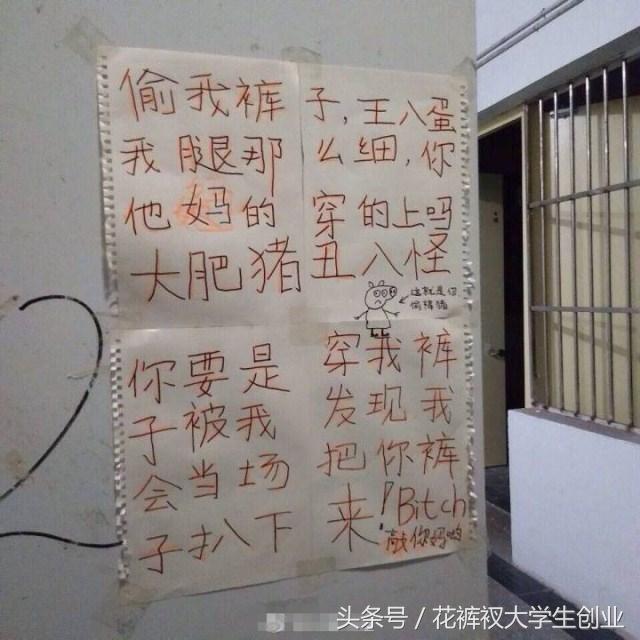 偷我裤子,王八蛋
我腿那么细,你
他妈的穿的上吗
大肥猪丑八怪
这就是你
你要是穿我裤
子被我发现我
会当场把你裤
子扒下来!Bitch
敲你妈哟
2
头条号 / 花裤衩大学生创业